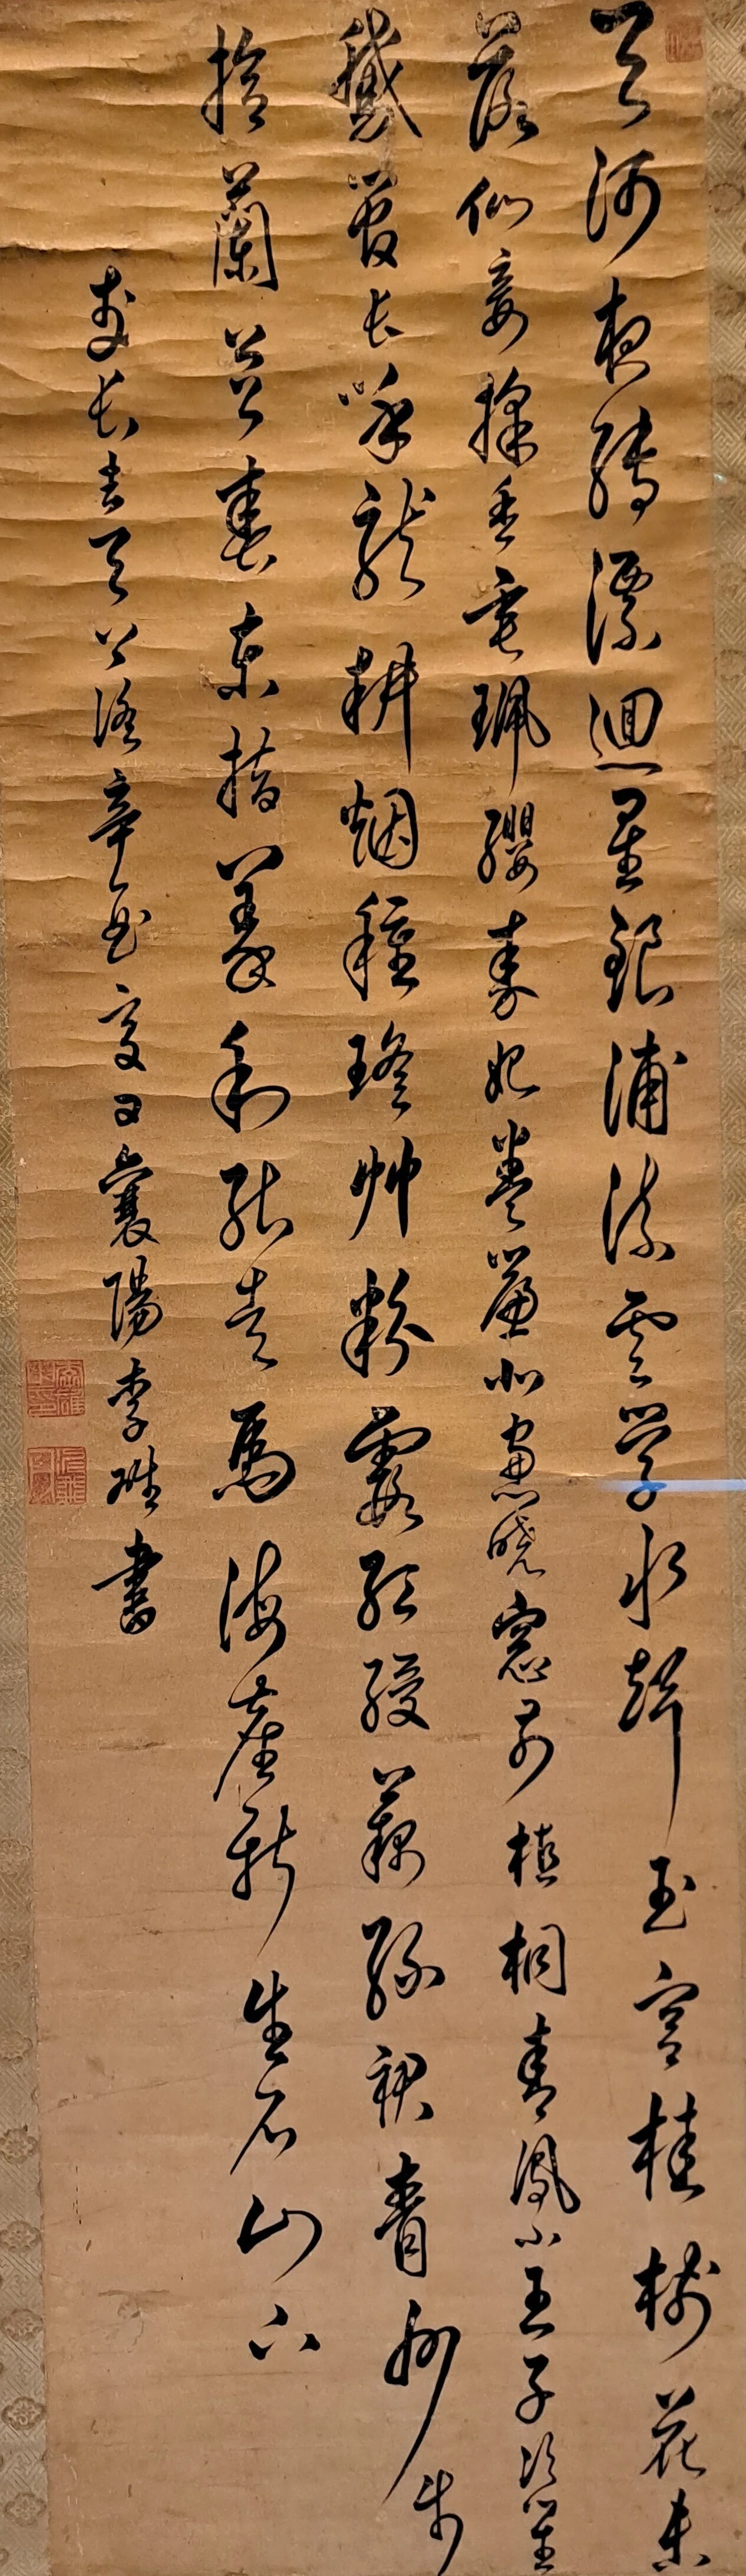 天河夜轉漂迴星銀浦流雲學水聲玉宮桂樹花未
落仙妾採香垂珮纓秦妃卷簾北窗曉窗前植桐青鳳小王子吹笙
鵝管長呼龍耕烟種瑤艸粉霞紅綬藕絲裙青洲步
拾蘭苕春東指羲和能走馬海塵新生石山下
長吉天上謠辛酉夏日襄陽李書